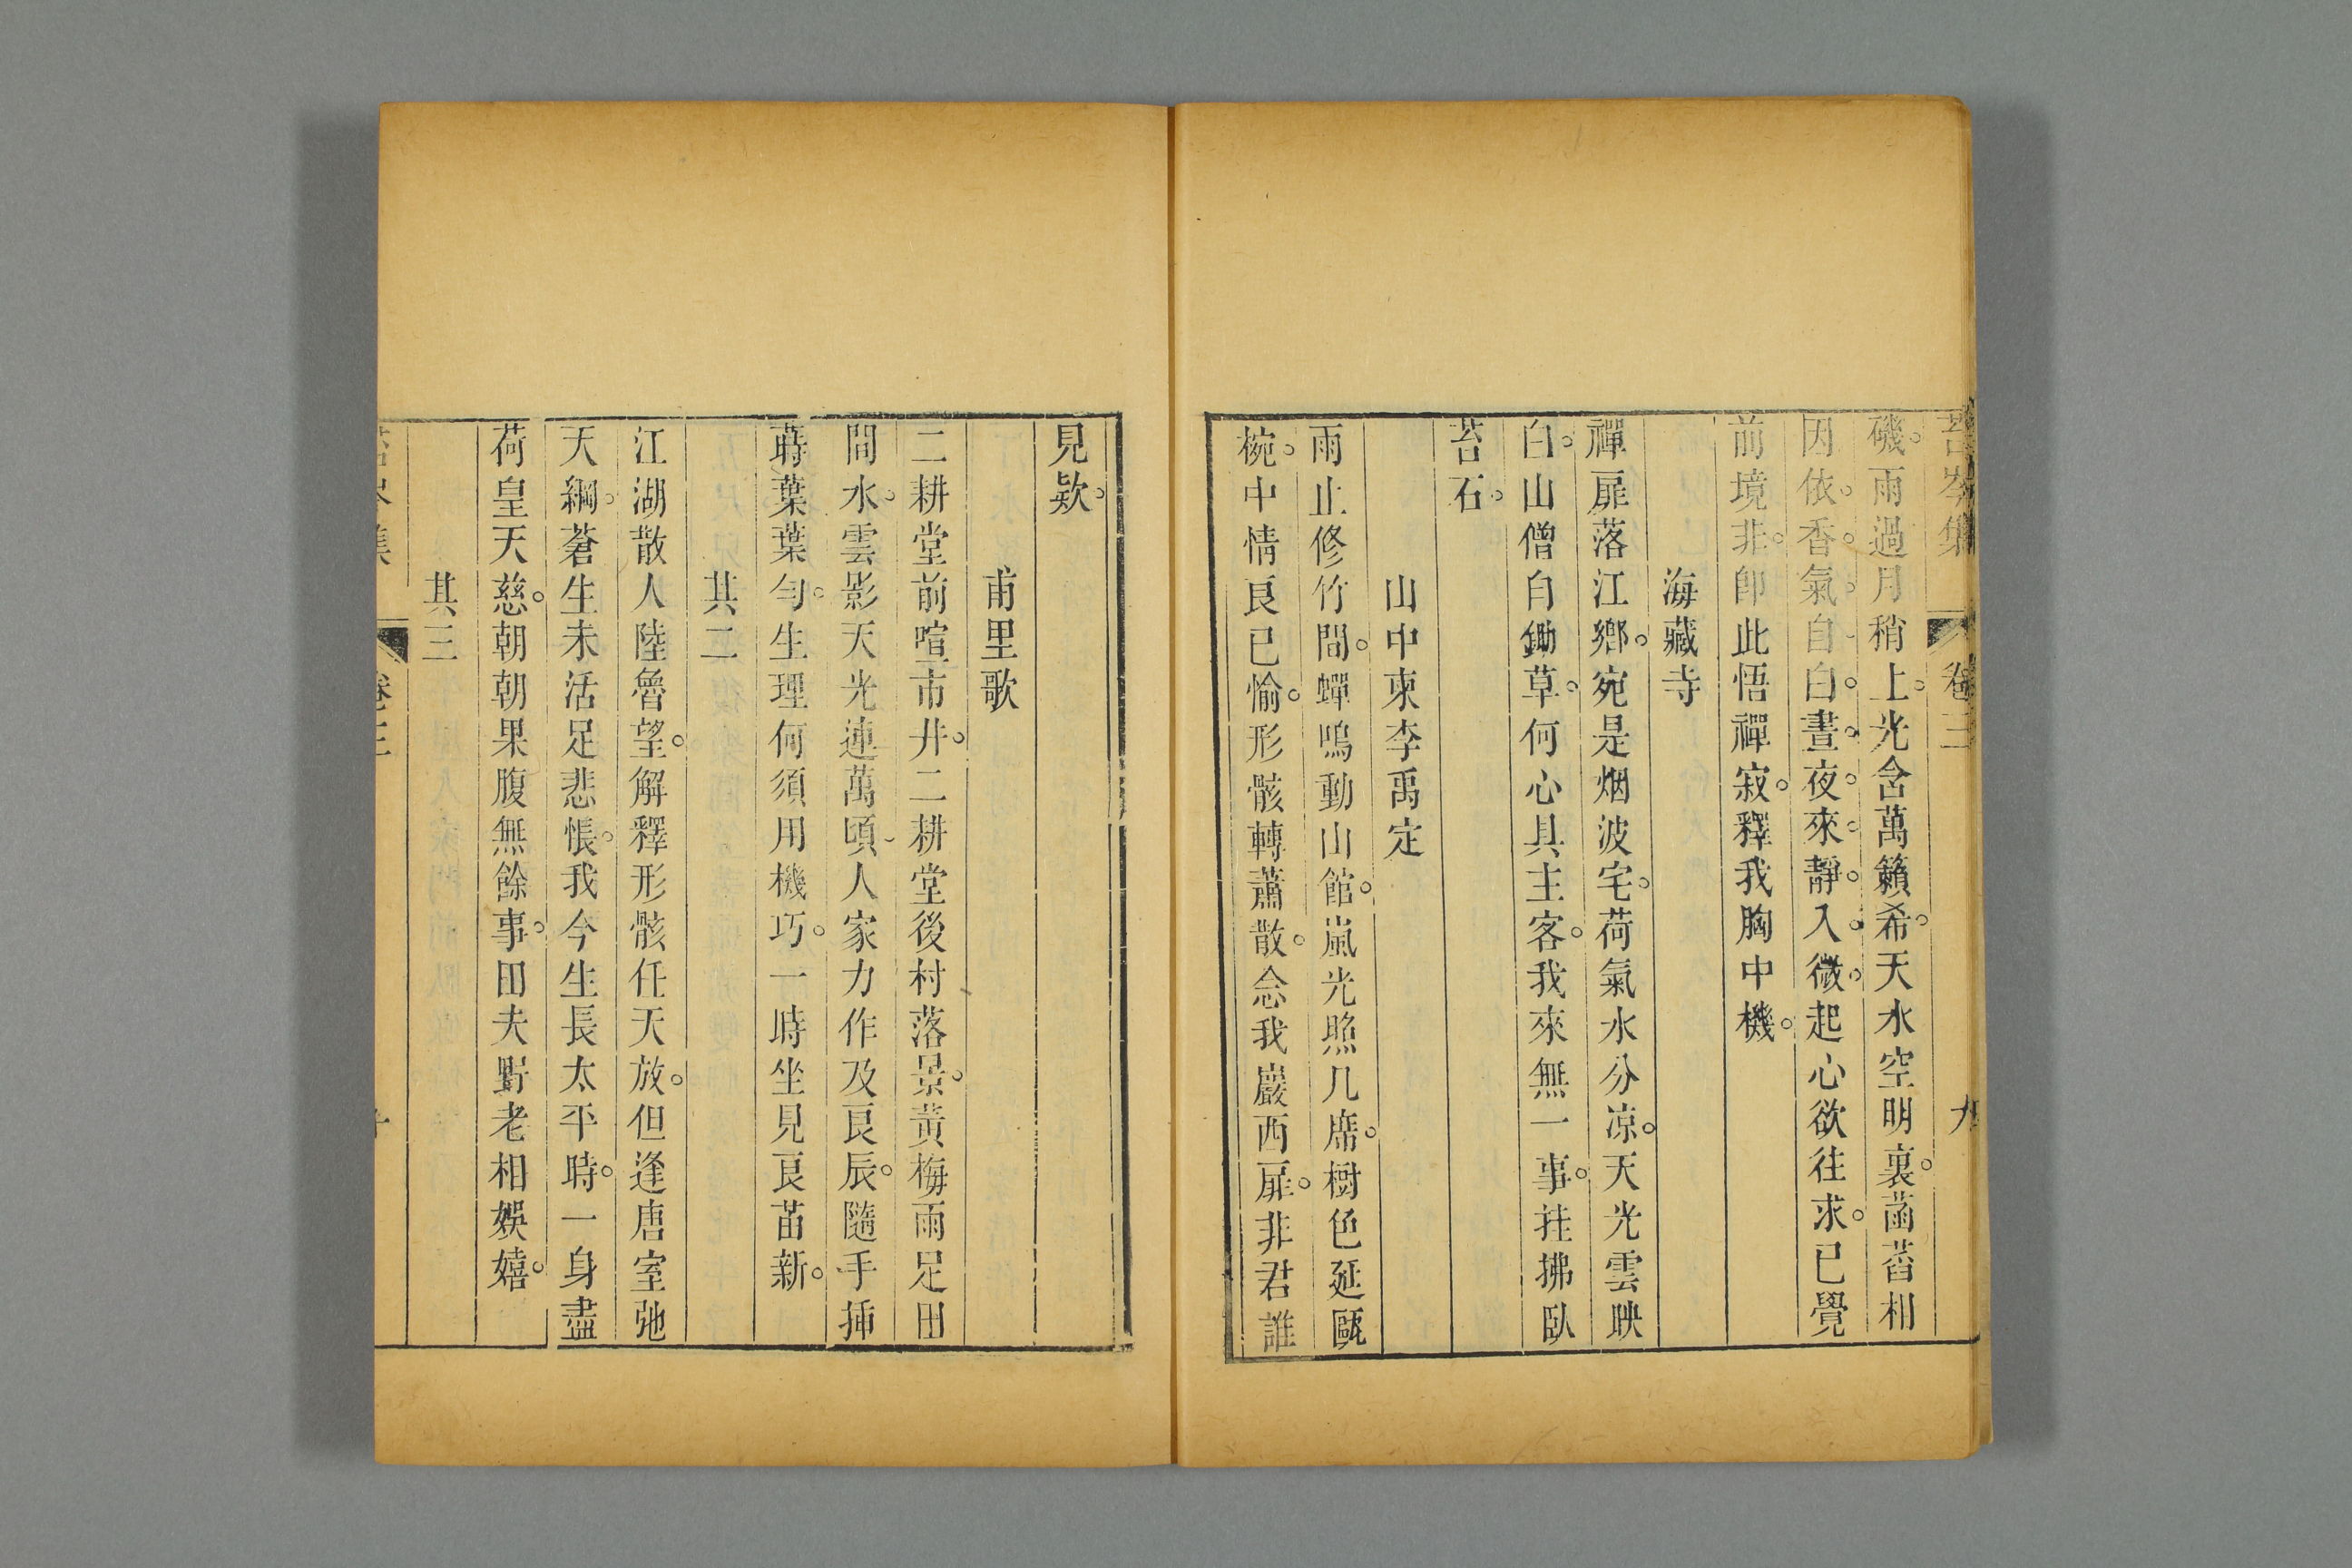 苔岑集 卷三 九
磯。雨過月稍上。光含萬籟希。天水空明裏。菡萏相
因依。香。氣。自。白。晝。夜。來。靜。入。微。起心欲往求。已覺
前境非。卽此悟禪寂。釋我胸中機。
海藏寺
禪扉落江鄉。宛是烟波宅。荷氣水分凉。天光雲映
白。山僧自鋤草。何心具主客。我來無一事。挂拂臥
苔石。
山中柬李禹定
雨止修竹間。蟬鳴動山館。嵐光照几席。樹色延甌
椀。中情良已愉。形骸轉蕭散。念我巖西扉。非君誰
見欵。
甫里歌
二耕堂前喧市井。二耕堂後村落景。黃梅雨足田
間水。雲影天光連萬頃。人家力作及良辰。隨手揷
蒔葉葉勻。生理何須用機巧。一時坐見良苗新。
其二
江湖散人陸魯望。解釋形骸任天放。但逢唐室弛
天綱。蒼生未活足悲悵。我今生長太平時。一身盡
荷皇天慈。朝朝果腹無餘事。田夫野老相娛嬉。
其三
苔岑集 卷三 十